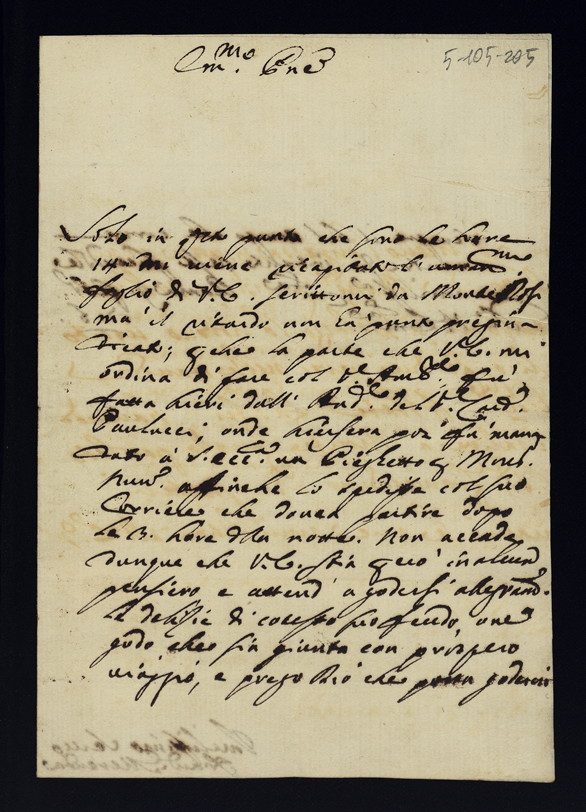 5-105-205
Em.mo P.ne
Solo in q.to punto che sono le hore
14 mi viene recapitato l'uman.mo
foglio di V.E. scrittomi da Monte Rosi
mà il ritardo non hà punto pregiu-
dicato; che la parte che V.E. mi
ordina di fare col fù
fatta hieri dall' Aud.e del Card.
Paulucci; onde hiersera poi fù man-
dato à S. Ecc.a un Pieghetto Mons.
Nun. affinche lo spedisse col suo
Corriere che dovea partire dopo
le 3. hore della notte. Non accade
dunque che V.E. stia perciò in alcun
pensiero e attend' a godersi allegram.
le delizie di cotesto suo feudo, one
godo che sia giunta con prospero
viaggio, e prego Dio che possa godersi